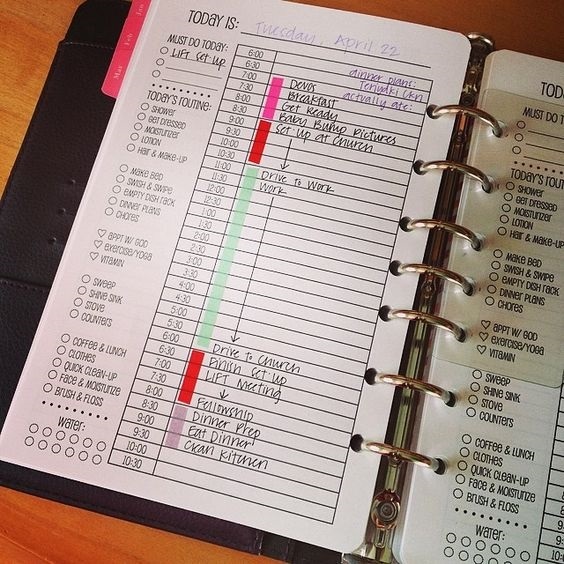 Jan
Feb
Mar
TODAY IS: Tuesday, April 22
MUST DO TODAY:
LIFT Set up
dinner plans:
Teriyaki ckn
actually ate:
TODAY'S ROUTINE:
SHOWER
GET DRESSED
MOISTURIZER
LOTION
HAIR & MAKE-UP
MAKE BED
SWISH & SWIPE
EMPTY DISH RACK
DINNER PLANS
CHORES
APPT W/ GOD
EXERCISE/YOGA
VITAMIN
SWEEP
SHINE SINK
STOVE
COUNTERS
COFFEE & LUNCH
CLOTHES
QUICK CLEAN-UP
FACE & MOISTURIZE
BRUSH & FLOSS
WATER:
6:00
6:30
7:00
7:30 Devos
8:00 Breakfast
8:30 Get Ready
9:00 Baby Bump Pictures
9:30 Set Up at Church
10:00
10:30
11:00
11:30 Drive to Work
12:00 Work
12:30
1:00
1:30
2:00
2:30
3:00
3:30
4:00
4:30
5:00
5:30
6:00 Drive to Church
6:30 Finish Set up
7:00 LIFT Meeting
7:30
8:00 Fellowship
8:30 Dinner Prep
9:00 Eat Dinner!
9:30 Clean Kitchen
10:00
10:30
TOD
MUST DO TODAY:
TODAY'S ROUTINE:
SHOWER
GET DRESSED
MOISTURIZER
LOTION
HAIR & MAKE-UP
MAKE BED
SWISH & SWIPE
EMPTY DISH RACK
DINNER PLANS
CHORES
APPT W/ GOD
EXERCISE/YOGA
VITAMIN
SWEEP
SHINE SINK
STOVE
COUNTERS
COFFEE & LUNCH
CLOTHES
QUICK CLEAN-UP
FACE & MOISTURIZE
BRUSH & FLOSS
WATER: